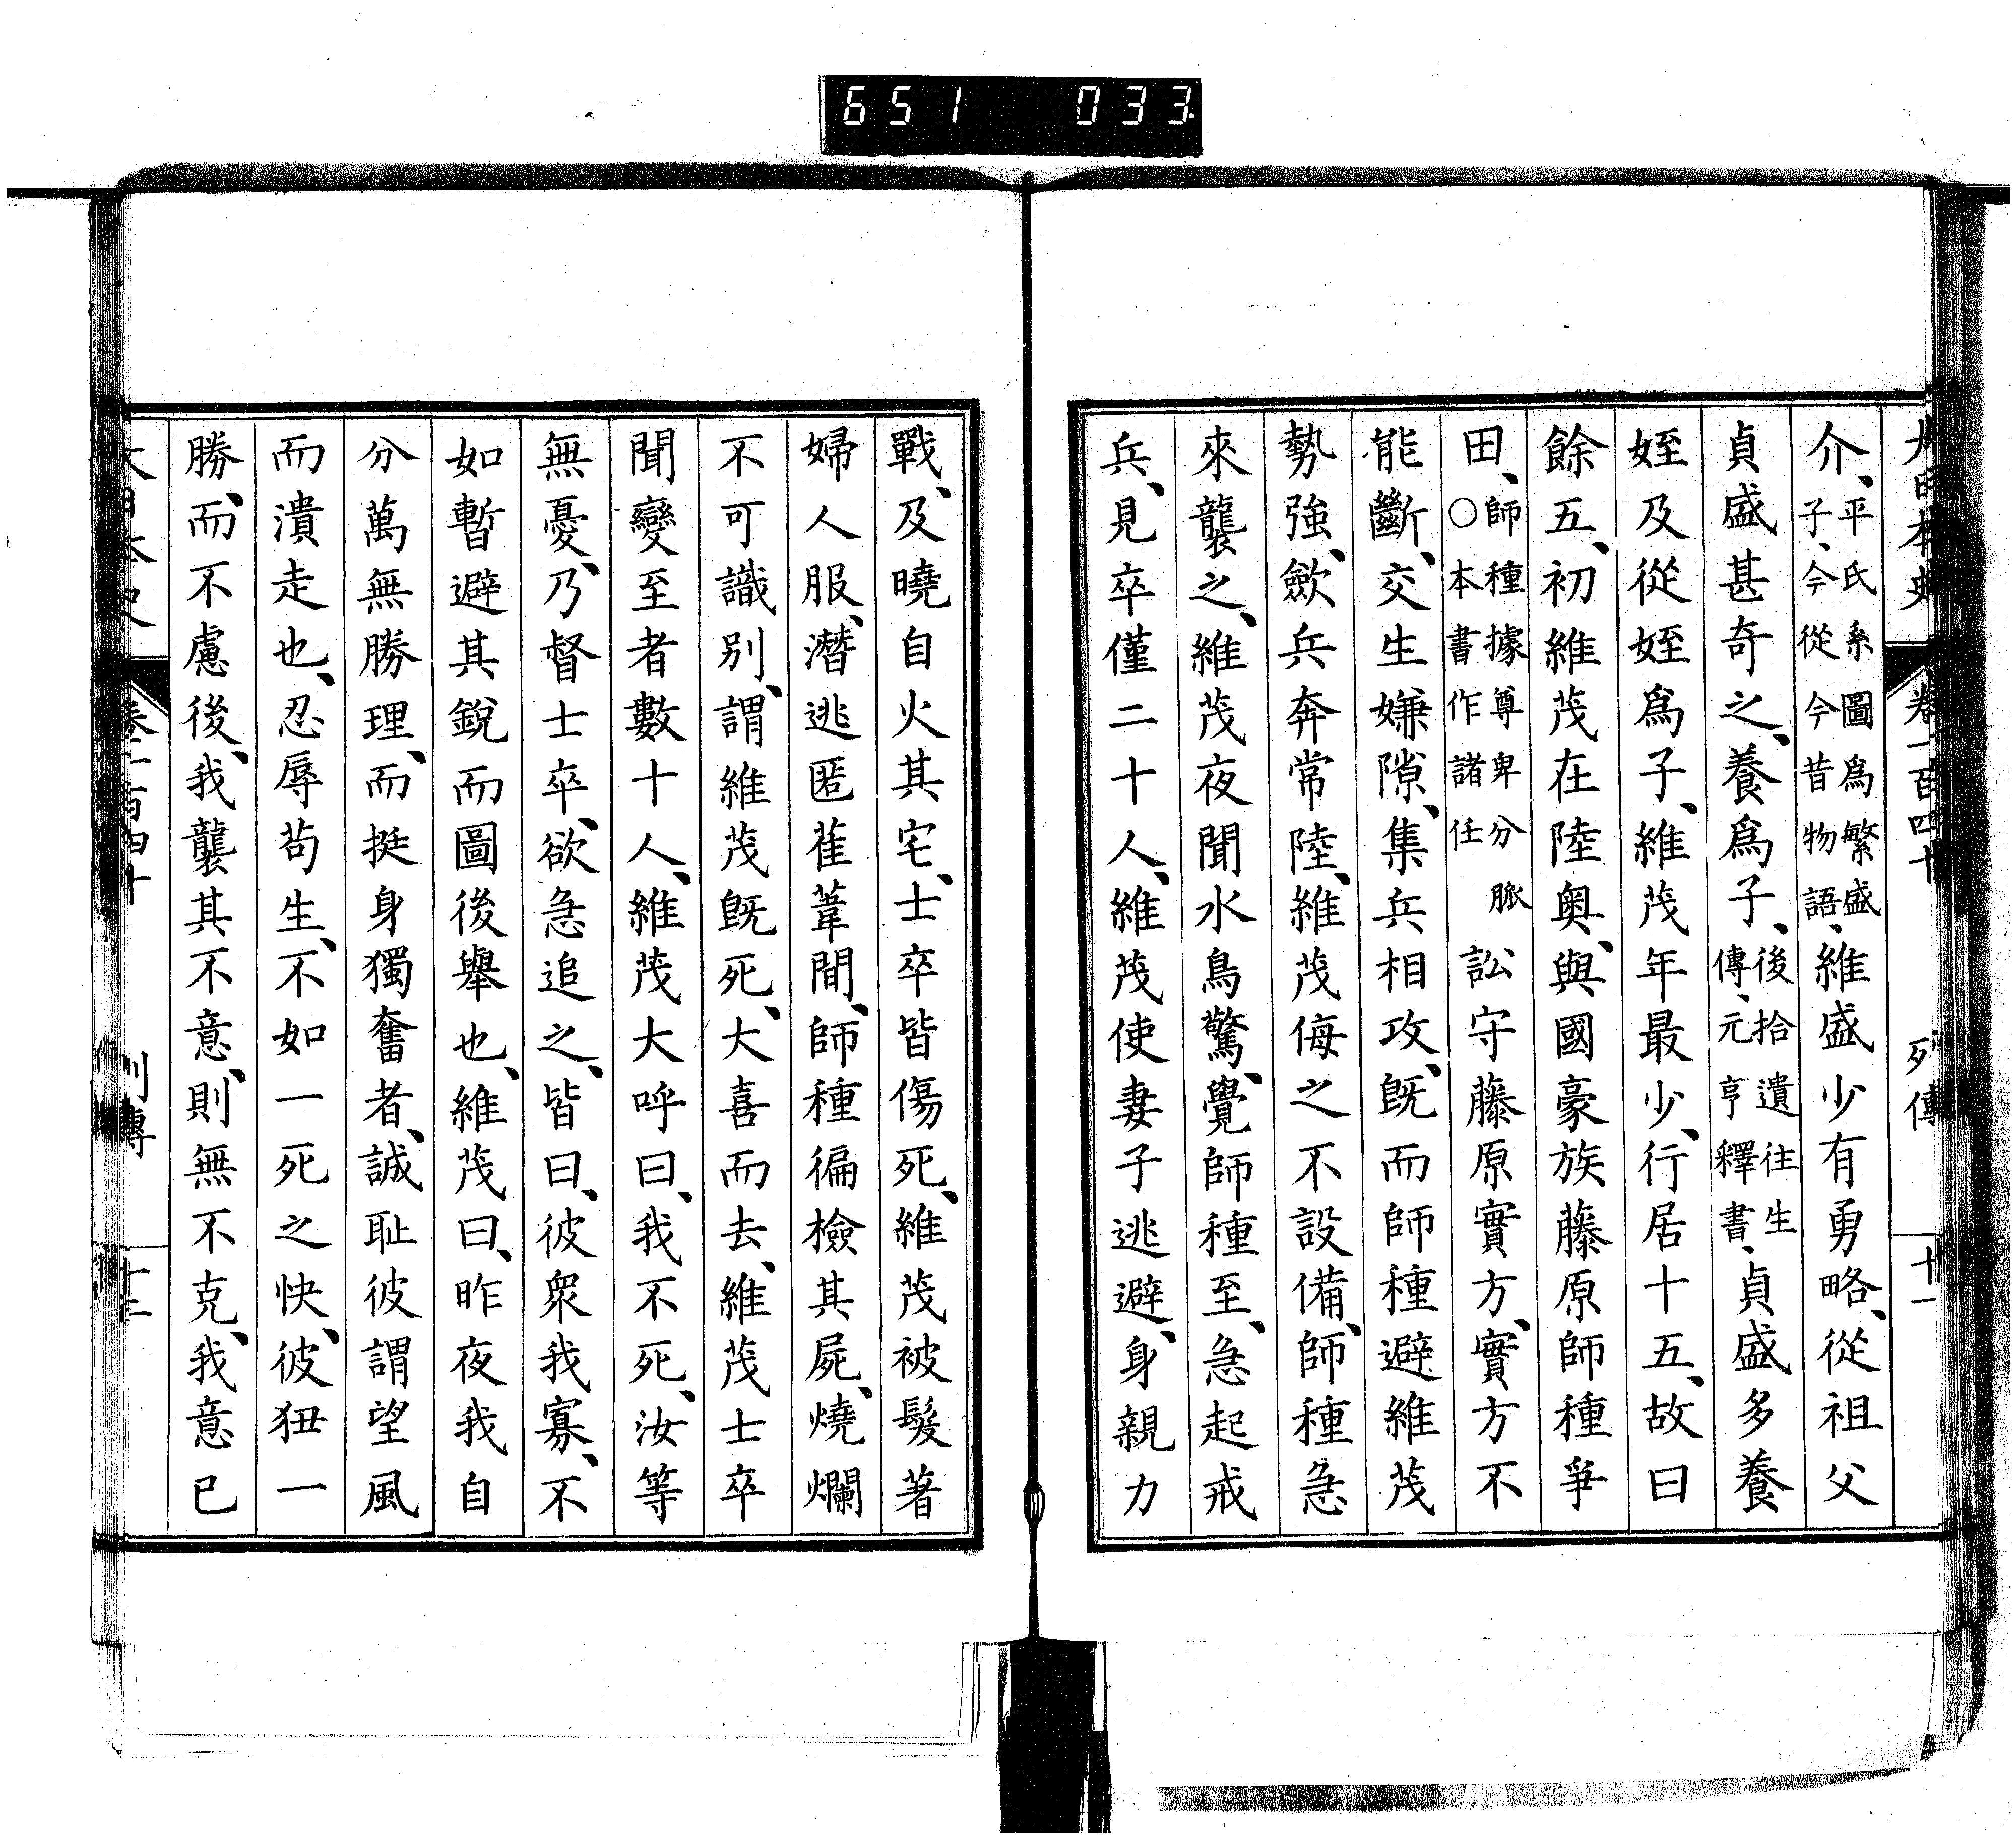 651 033
大日本史 卷一百四十 列傳 十一
介、平氏系圖爲繁盛子、今從今昔物語、維盛少有勇略、從祖父
貞盛甚奇之、養爲子、後拾遺往生傳、元亨釋書、貞盛多養
姪及從姪爲子、維茂年最少、行居十五、故曰
餘五、初維茂在陸奧、與國豪族藤原師種爭
田、師種據尊卑分脈○本書作諸任訟守藤原實方、實方不
能斷、交生嫌隙、集兵相攻、既而師種避維茂
勢強、歛兵奔常陸、維茂侮之不設備、師種急
來襲之、維茂夜聞水鳥驚、覺師種至、急起戒
兵、見卒僅二十人、維茂使妻子逃避、身親力
戰、及曉自火其宅、士卒皆傷死、維茂被髮著
婦人服、潛逃匿萑葦間、師種徧檢其屍、燒爛
不可識別、謂維茂既死、大喜而去、維茂士卒
聞變至者數十人、維茂大呼曰、我不死、汝等
無憂、乃督士卒、欲急追之、皆曰、彼衆我寡、不
如暫避其銳而圖後擧也、維茂曰、昨夜我自
分萬無勝理、而挺身獨奮者、誠耻彼謂望風
而潰走也、忍辱苟生、不如一死之快、彼狃一
勝、而不慮後、我襲其不意、則無不克、我意已
大日本史 卷一百四十 列傳 十二